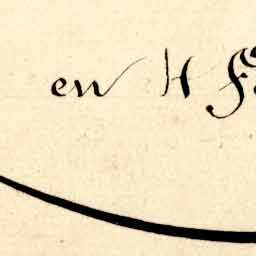 en H